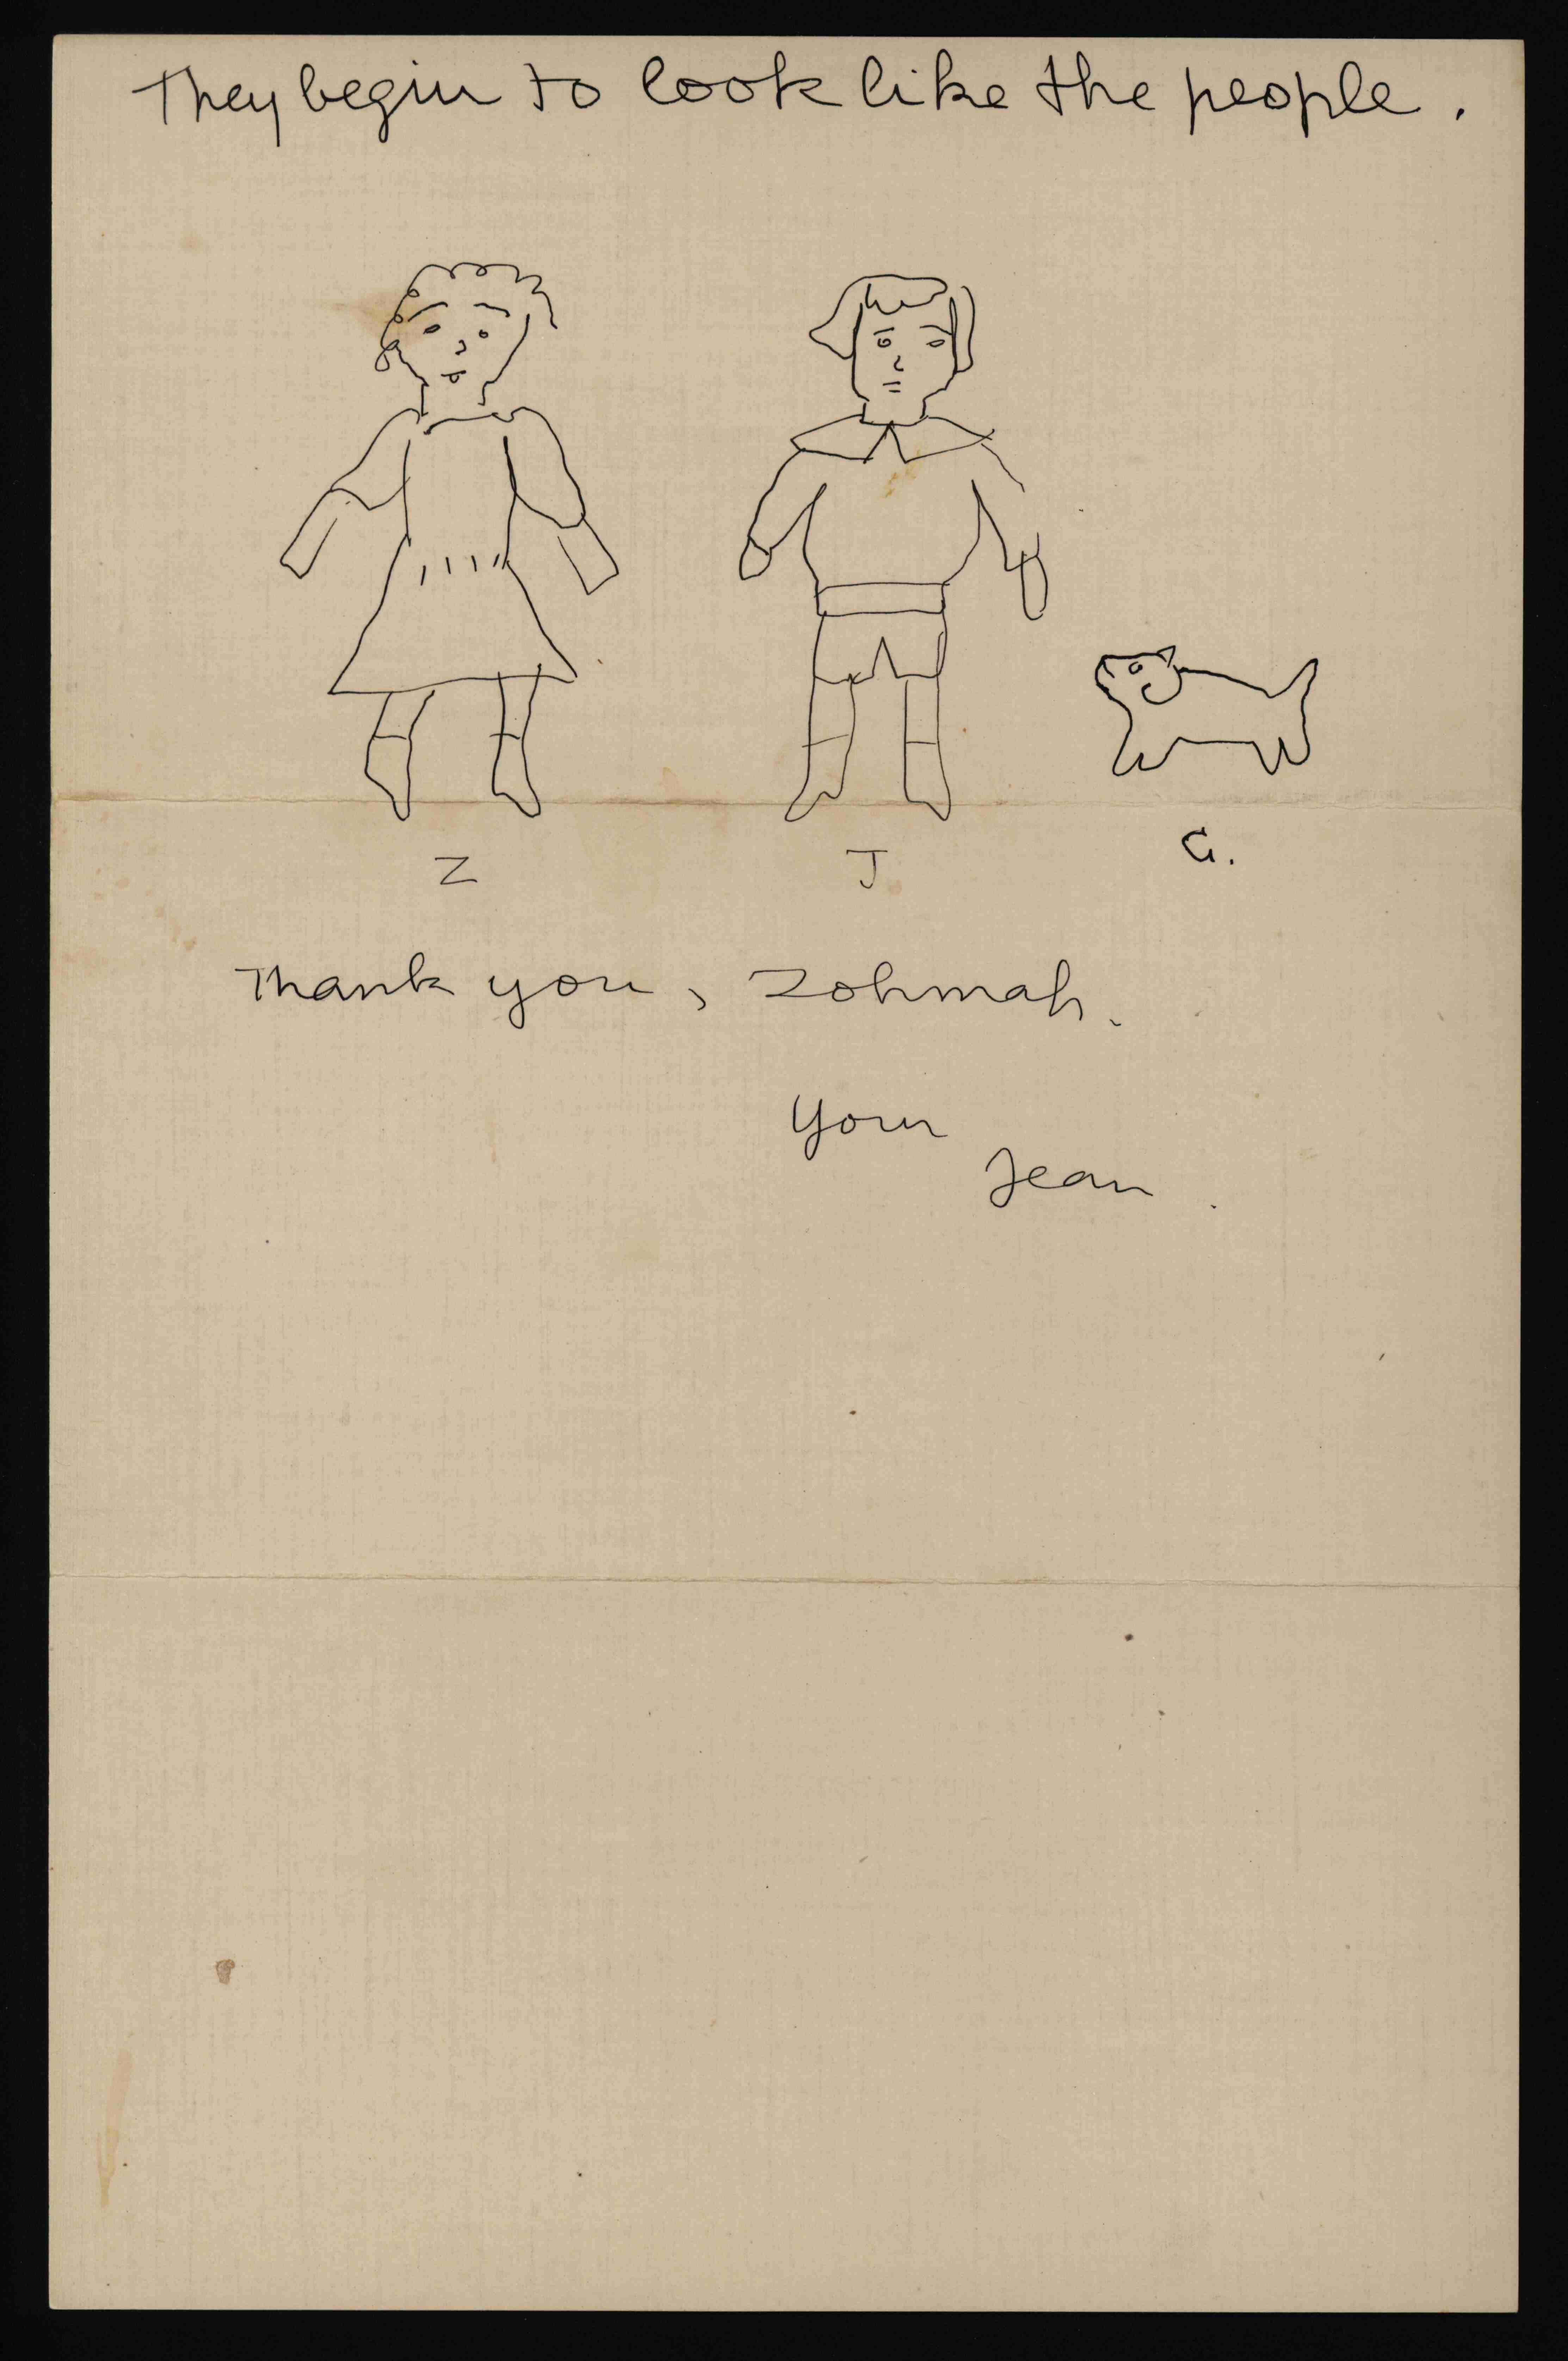 They begin to look like the people.
Z J G.
Thank you, Zohmah.
Your
Jean